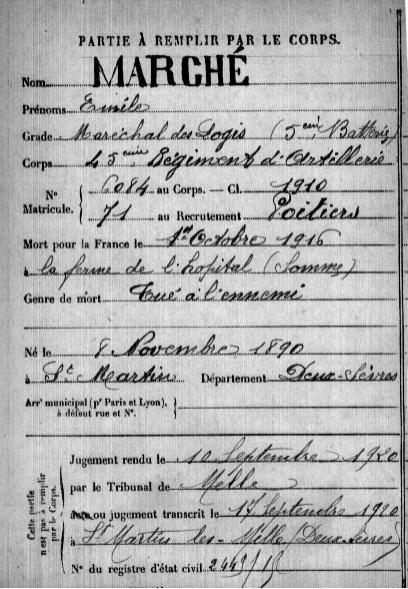 PARTIE À REMPLIR PAR LE CORPS.
Nom MARCHÉ
Prénoms Emile
Grade Maréchal des Logis (5eme Batterie)
Corps 45eme Régiment d'Artillerie
N° Matricule. { 6084 au Corps. — Cl. 1910
71 au Recrutement Poitiers
Mort pour la France le 1er Octobre 1916
à la ferme de l'hopital (Somme)
Genre de mort Tué à l'ennemi
Né le 8 Novembre 1890
à St Martin Département Deux-Sèvres
Arrt municipal (pr Paris et Lyon), à défaut rue et N°.
Cette partie n'est pas à remplir par le Corps.
Jugement rendu le 10 Septembre 1920
par le Tribunal de Melle
ou jugement transcrit le 17 Septembre 1920
à St Martin les-Melle (Deux-Sèvres)
N° du registre d'état civil